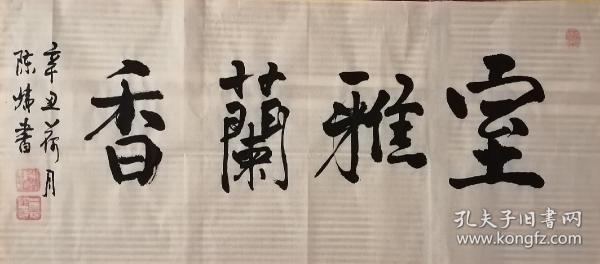 室雅蘭香
辛丑荷月
陈炜書
孔夫子旧書网
www.kongfz.com